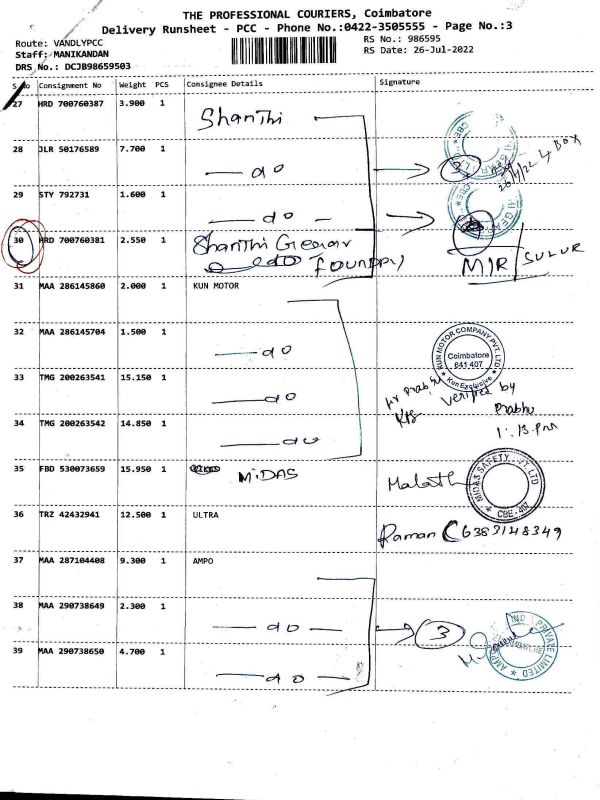 THE PROFESSIONAL COURIERS, Coimbatore
Delivery Runsheet - PCC - Phone No.:0422-3505555 - Page No.:3
Route: VANDLYPCC
RS No.: 986595
Staff: MANIKANDAN
RS Date: 26-Jul-2022
DRS No.: DCJB98659503
S.No Consignment No Weight PCS Consignee Details Signature
27 HRD 700760387 3.900 1 Shanthi
28 JLR 50176589 7.700 1 — do 3 4 BOX
29 STY 792731 1.600 1 — do —
30 HRD 700760381 2.550 1 Shanthi Gear
do foundry
MIR / SULUR
31 MAA 286145860 2.000 1 KUN MOTOR
32 MAA 286145704 1.500 1 — do
KUN MOTOR COMPANY PVT. LTD
Coimbatore
641 407
Kun Exclusive
33 TMG 200263541 15.150 1 — do
verified by
Prabhu
34 TMG 200263542 14.850 1 — do
1:13.Pm
35 FBD 530073659 15.950 1 MiDAS
MIDAS SAFETY PVT. LTD
CBE - 407
36 TRZ 42432941 12.500 1 ULTRA Raman 6383148349
37 MAA 287104408 9.300 1 AMPO
38 MAA 290738649 2.300 1 — do — 3
PRIVATE LIMITED
39 MAA 290738650 4.700 1 — do —